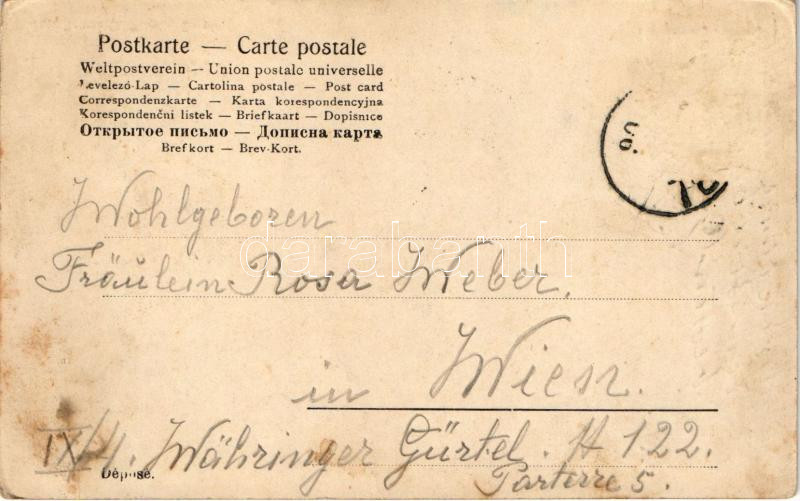 Postkarte — Carte postale
Weltpostverein — Union postale universelle
Levelező-Lap — Cartolina postale — Post card
Correspondenzkarte — Karta korespondencyjna
Korespondenční listek — Briefkaart — Dopisnice
Открытое письмо — Дописна карта
Brefkort — Brev-Kort.
Wohlgeboren
darabanth
Fräulein Rosa Weber.
in Wien.
IX/4. Währinger Gürtel. H 122.
Parterre 5.
Déposé.